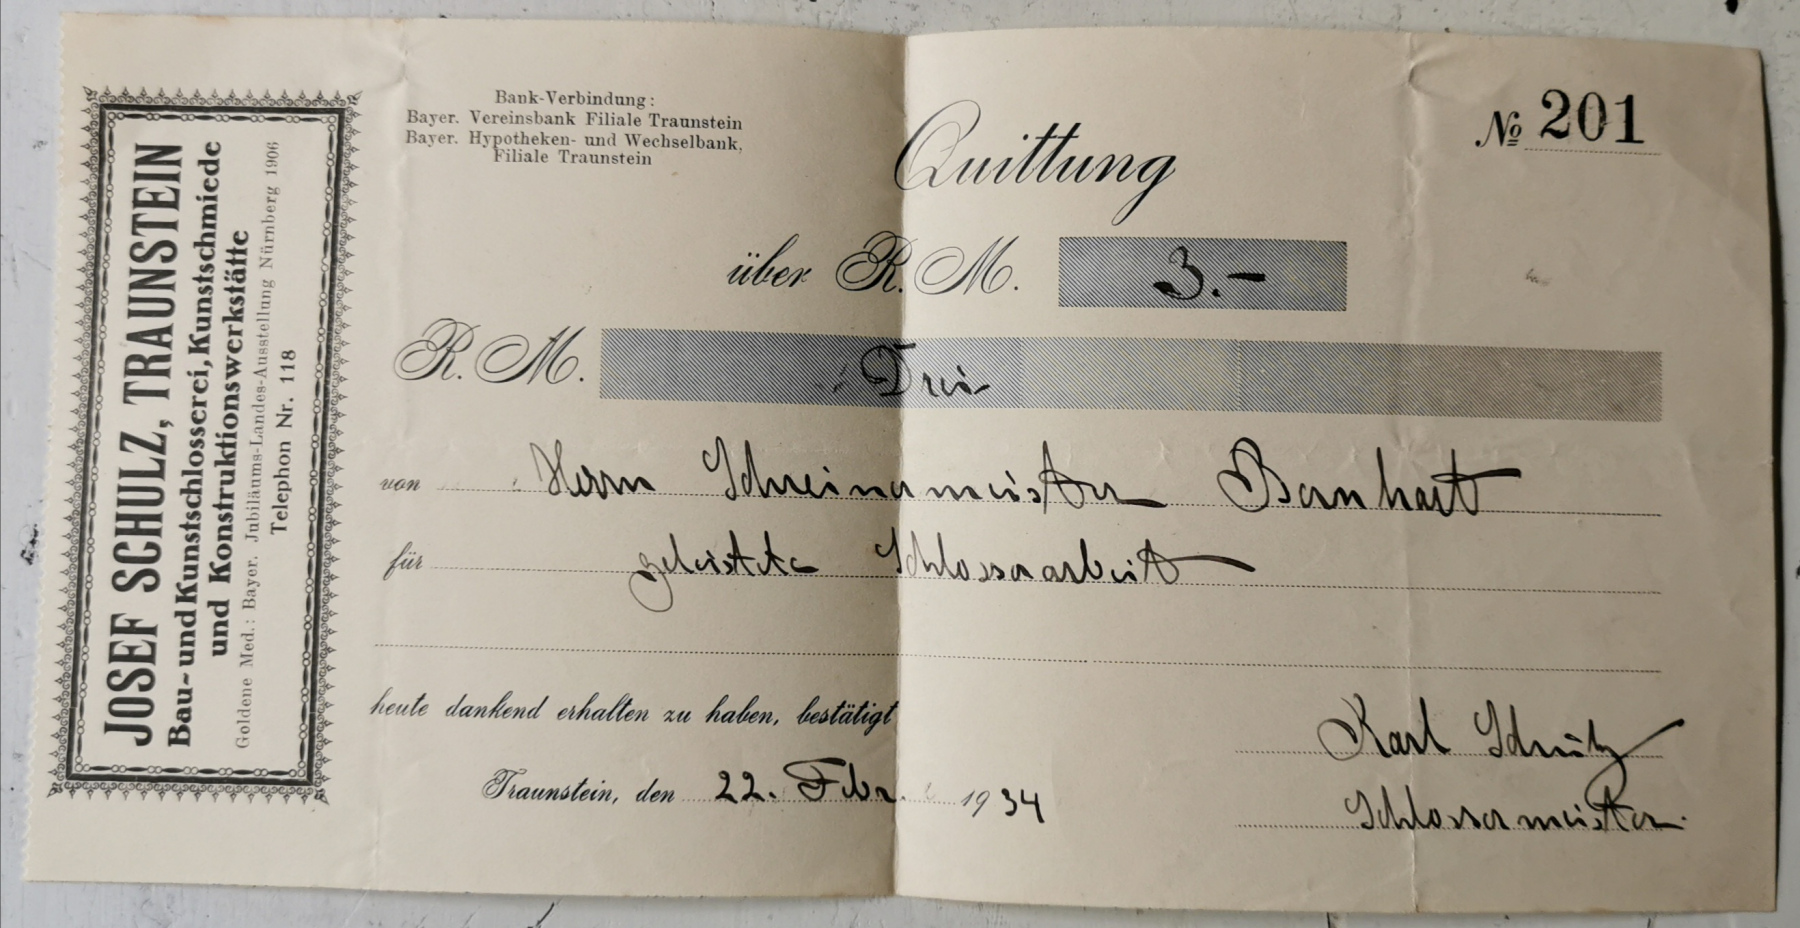 JOSEF SCHULZ, TRAUNSTEIN
Bau- und Kunstschlosserei, Kunstschmiede
und Konstruktionswerkstätte
Goldene Med.: Bayer. Jubiläums-Landes-Ausstellung Nürnberg 1906
Telephon Nr. 118
Bank-Verbindung:
Bayer. Vereinsbank Filiale Traunstein
Bayer. Hypotheken- und Wechselbank,
Filiale Traunstein
No 201
Quittung
über R. M. 3.-
R. M. Drei
von Herrn Schreinermeister Bernhart
für geleistete Schlosserarbeit
heute dankend erhalten zu haben, bestätigt
Karl
Traunstein, den 22. Febr. 1934
Schlossermeister.